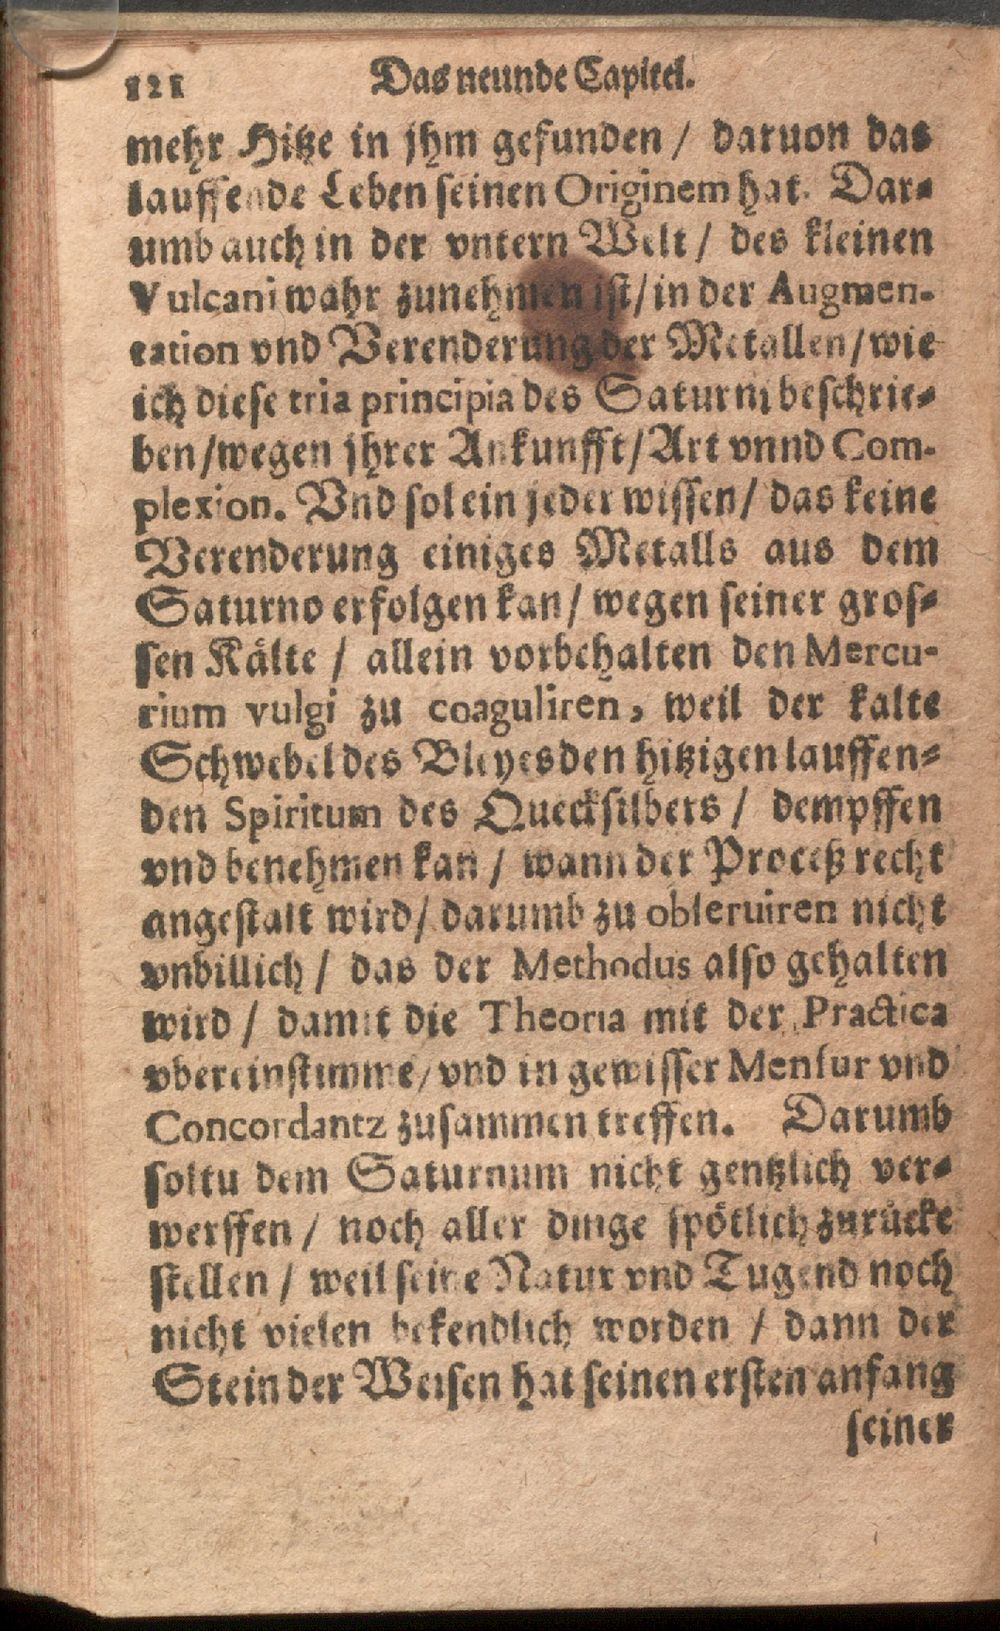 121 Das neunde Capitel.
mehr Hitze in jhm gefunden / daruon das
lauffende Leben seinen Originem hat. Dar-
umb auch in der vntern Welt / des kleinen
Vulcani wahr zunehmen ist / in der Augmen-
tation vnd Verenderung der Metallen / wie
ich diese tria principia des Saturni beschrie-
ben / wegen jhrer Ankunfft / Art vnnd Com-
plexion. Vnd sol ein jeder wissen / das keine
Verenderung einiges Metalls aus dem
Saturno erfolgen kan / wegen seiner gros-
sen Kälte / allein vorbehalten den Mercu-
rium vulgi zu coaguliren, weil der kalte
Schwebel des Bleyes den hitzigen lauffen-
den Spiritum des Quecksilbers / dempffen
vnd benehmen kan / wann der Proceß recht
angestalt wird / darumb zu obseruiren nicht
vnbillich / das der Methodus also gehalten
wird / damit die Theoria mit der Practica
vbereinstimme / vnd in gewisser Mensur vnd
Concordantz zusammen treffen. Darumb
soltu dem Saturnum nicht gentzlich ver-
werffen / noch aller dinge spötlich zurücke
stellen / weil seine Natur vnd Tugend noch
nicht vielen bekendlich worden / dann der
Stein der Weisen hat seinen ersten anfang
seiner